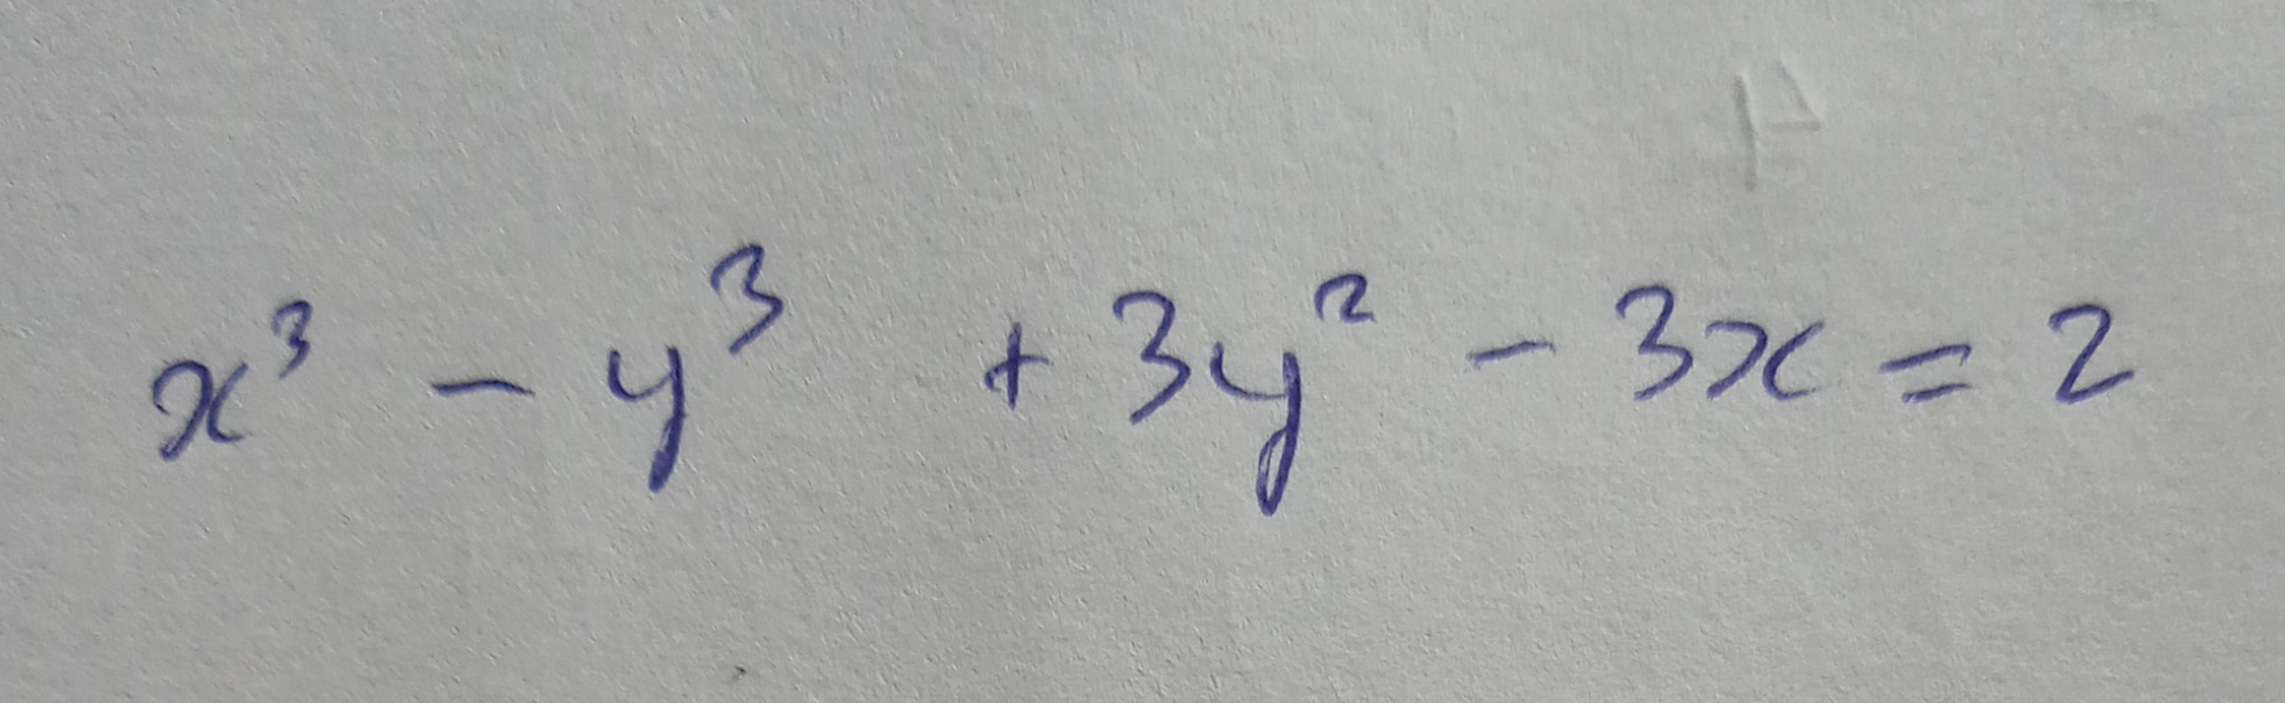 x³ - y³ + 3y² - 3x = 2